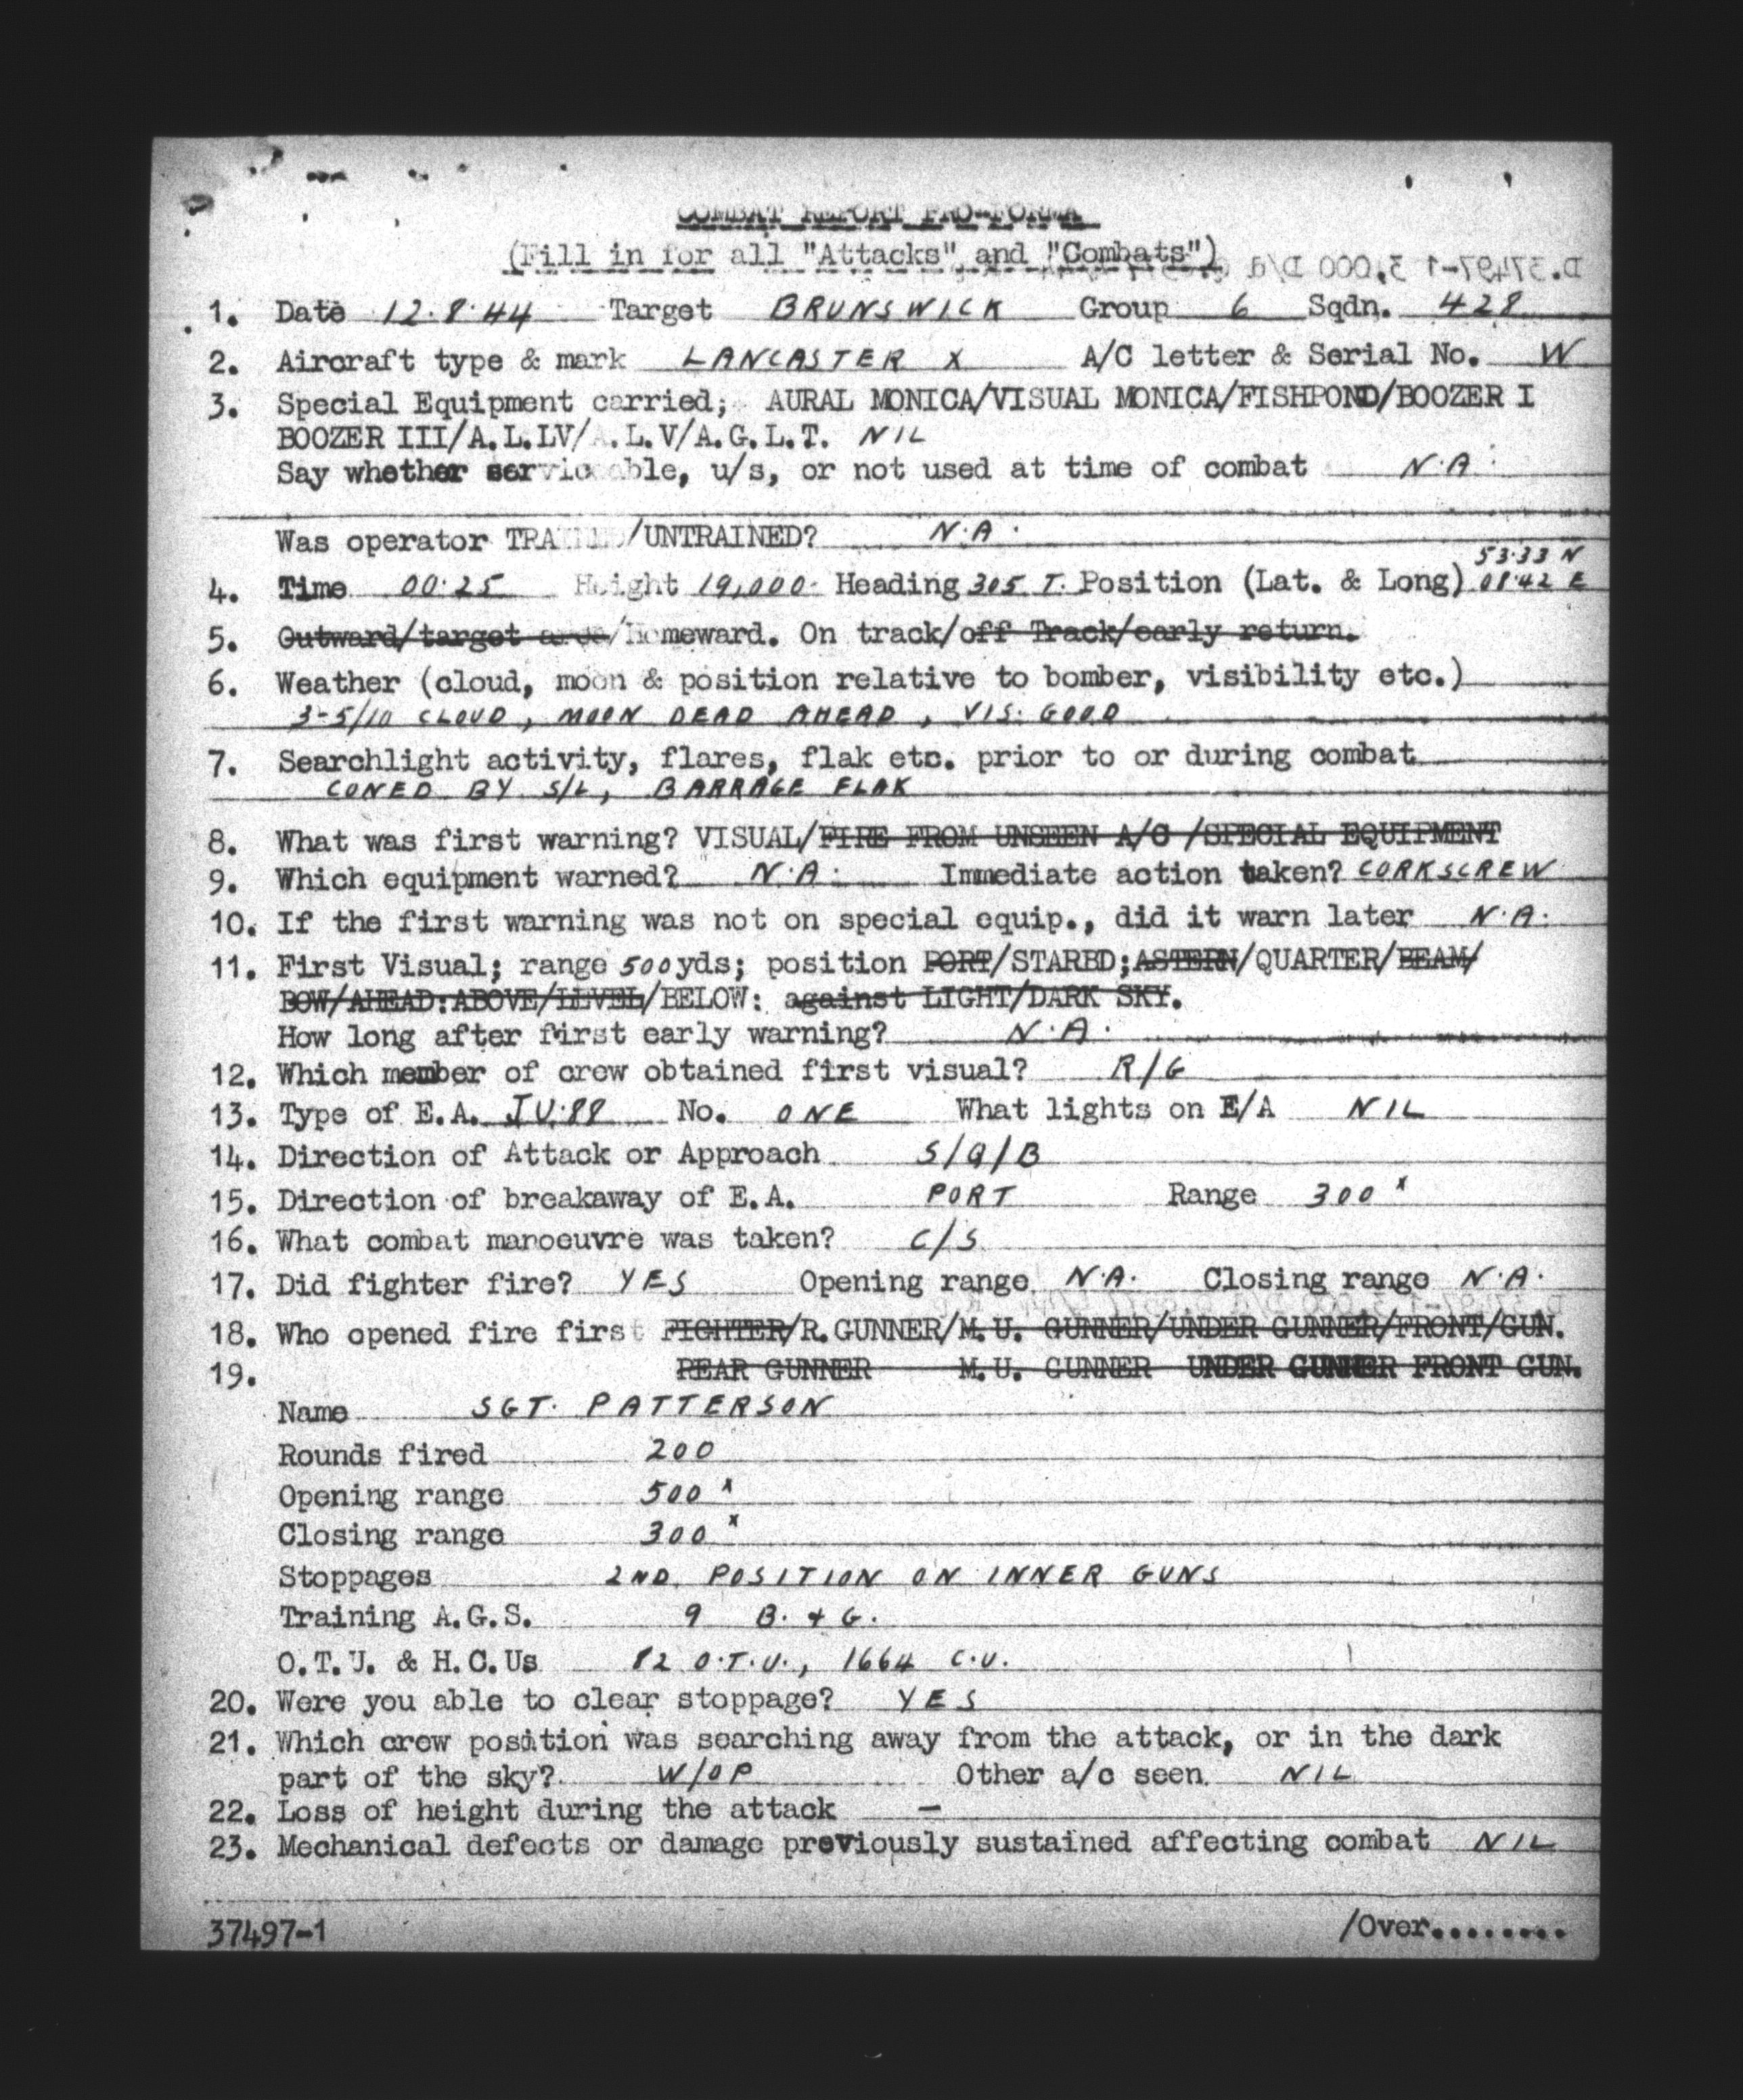 COMBAT REPORT PRO-FORMA
(Fill in for all "Attacks" and "Combats")
D.37497-1 3,000 D/d
1. Date 12.8.44 Target BRUNSWICK Group 6 Sqdn. 428
2. Aircraft type & mark LANCASTER X A/C letter & Serial No. W
3. Special Equipment carried; AURAL MONICA/VISUAL MONICA/FISHPOND/BOOZER I
BOOZER III/A.L.LV/A.L.V/A.G.L.T. NIL
Say whether serviceable, u/s, or not used at time of combat N.A.
Was operator TRAINED/UNTRAINED? N.A.
53.33 N
4. Time 00.25 Height 19,000. Heading 305 T. Position (Lat. & Long) 08.42 E
5. Outward/target area/Homeward. On track/off Track/early return.
6. Weather (cloud, moon & position relative to bomber, visibility etc.)
3-5/10 CLOUD, MOON DEAD AHEAD, VIS. GOOD
7. Searchlight activity, flares, flak etc. prior to or during combat
CONED BY S/L, BARRAGE FLAK
8. What was first warning? VISUAL/FIRE FROM UNSEEN A/C /SPECIAL EQUIPMENT
9. Which equipment warned? N.A. Immediate action taken? CORKSCREW
10. If the first warning was not on special equip., did it warn later N.A.
11. First Visual; range 500yds; position PORT/STARBD;ASTERN/QUARTER/BEAM/
BOW/AHEAD:ABOVE/LEVEL/BELOW: against LIGHT/DARK SKY.
How long after first early warning? N.A.
12. Which member of crew obtained first visual? R/G
13. Type of E.A. JU.88 No. ONE What lights on E/A NIL
14. Direction of Attack or Approach S/Q/B
15. Direction of breakaway of E.A. PORT Range 300 x
16. What combat manoeuvre was taken? C/S
17. Did fighter fire? YES Opening range N.A. Closing range N.A.
18. Who opened fire first FIGHTER/R.GUNNER/M.U. GUNNER/UNDER GUNNER/FRONT/GUN.
19. REAR GUNNER M.U. GUNNER UNDER GUNNER FRONT GUN.
Name SGT. PATTERSON
Rounds fired 200
Opening range 500 x
Closing range 300 x
Stoppages 2ND. POSITION ON INNER GUNS
Training A.G.S. 9 B. & G.
O.T.U. & H.C.Us 82 O.T.U., 1664 C.U.
20. Were you able to clear stoppage? YES
21. Which crew position was searching away from the attack, or in the dark
part of the sky? W/OP Other a/c seen. NIL
22. Loss of height during the attack —
23. Mechanical defects or damage previously sustained affecting combat NIL
37497-1 /Over........